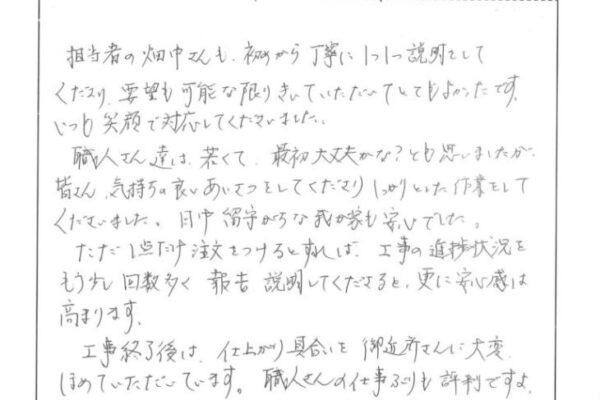 担当者の畑中さんも、初めから丁寧に1つ1つ説明をして
くださり、要望も可能な限りきいていただいてとてもよかったです。
いつも笑顔で対応してくださいました。
職人さん達は、若くて、最初大丈夫かな?とも思いましたが、
皆さん、気持ちの良いあいさつをしてくださりしっかりとした作業をして
くださいました。日中留守がちな我が家も安心でした。
ただ1点だけ注文をつけるとすれば、工事の進捗状況を
もう少し回数多く報告、説明してくださると、更に安心感は
高まります。
工事終了後は、仕上がり具合いを御近所さんに大変
ほめていただいています。職人さんの仕事ぶりも評判ですよ。